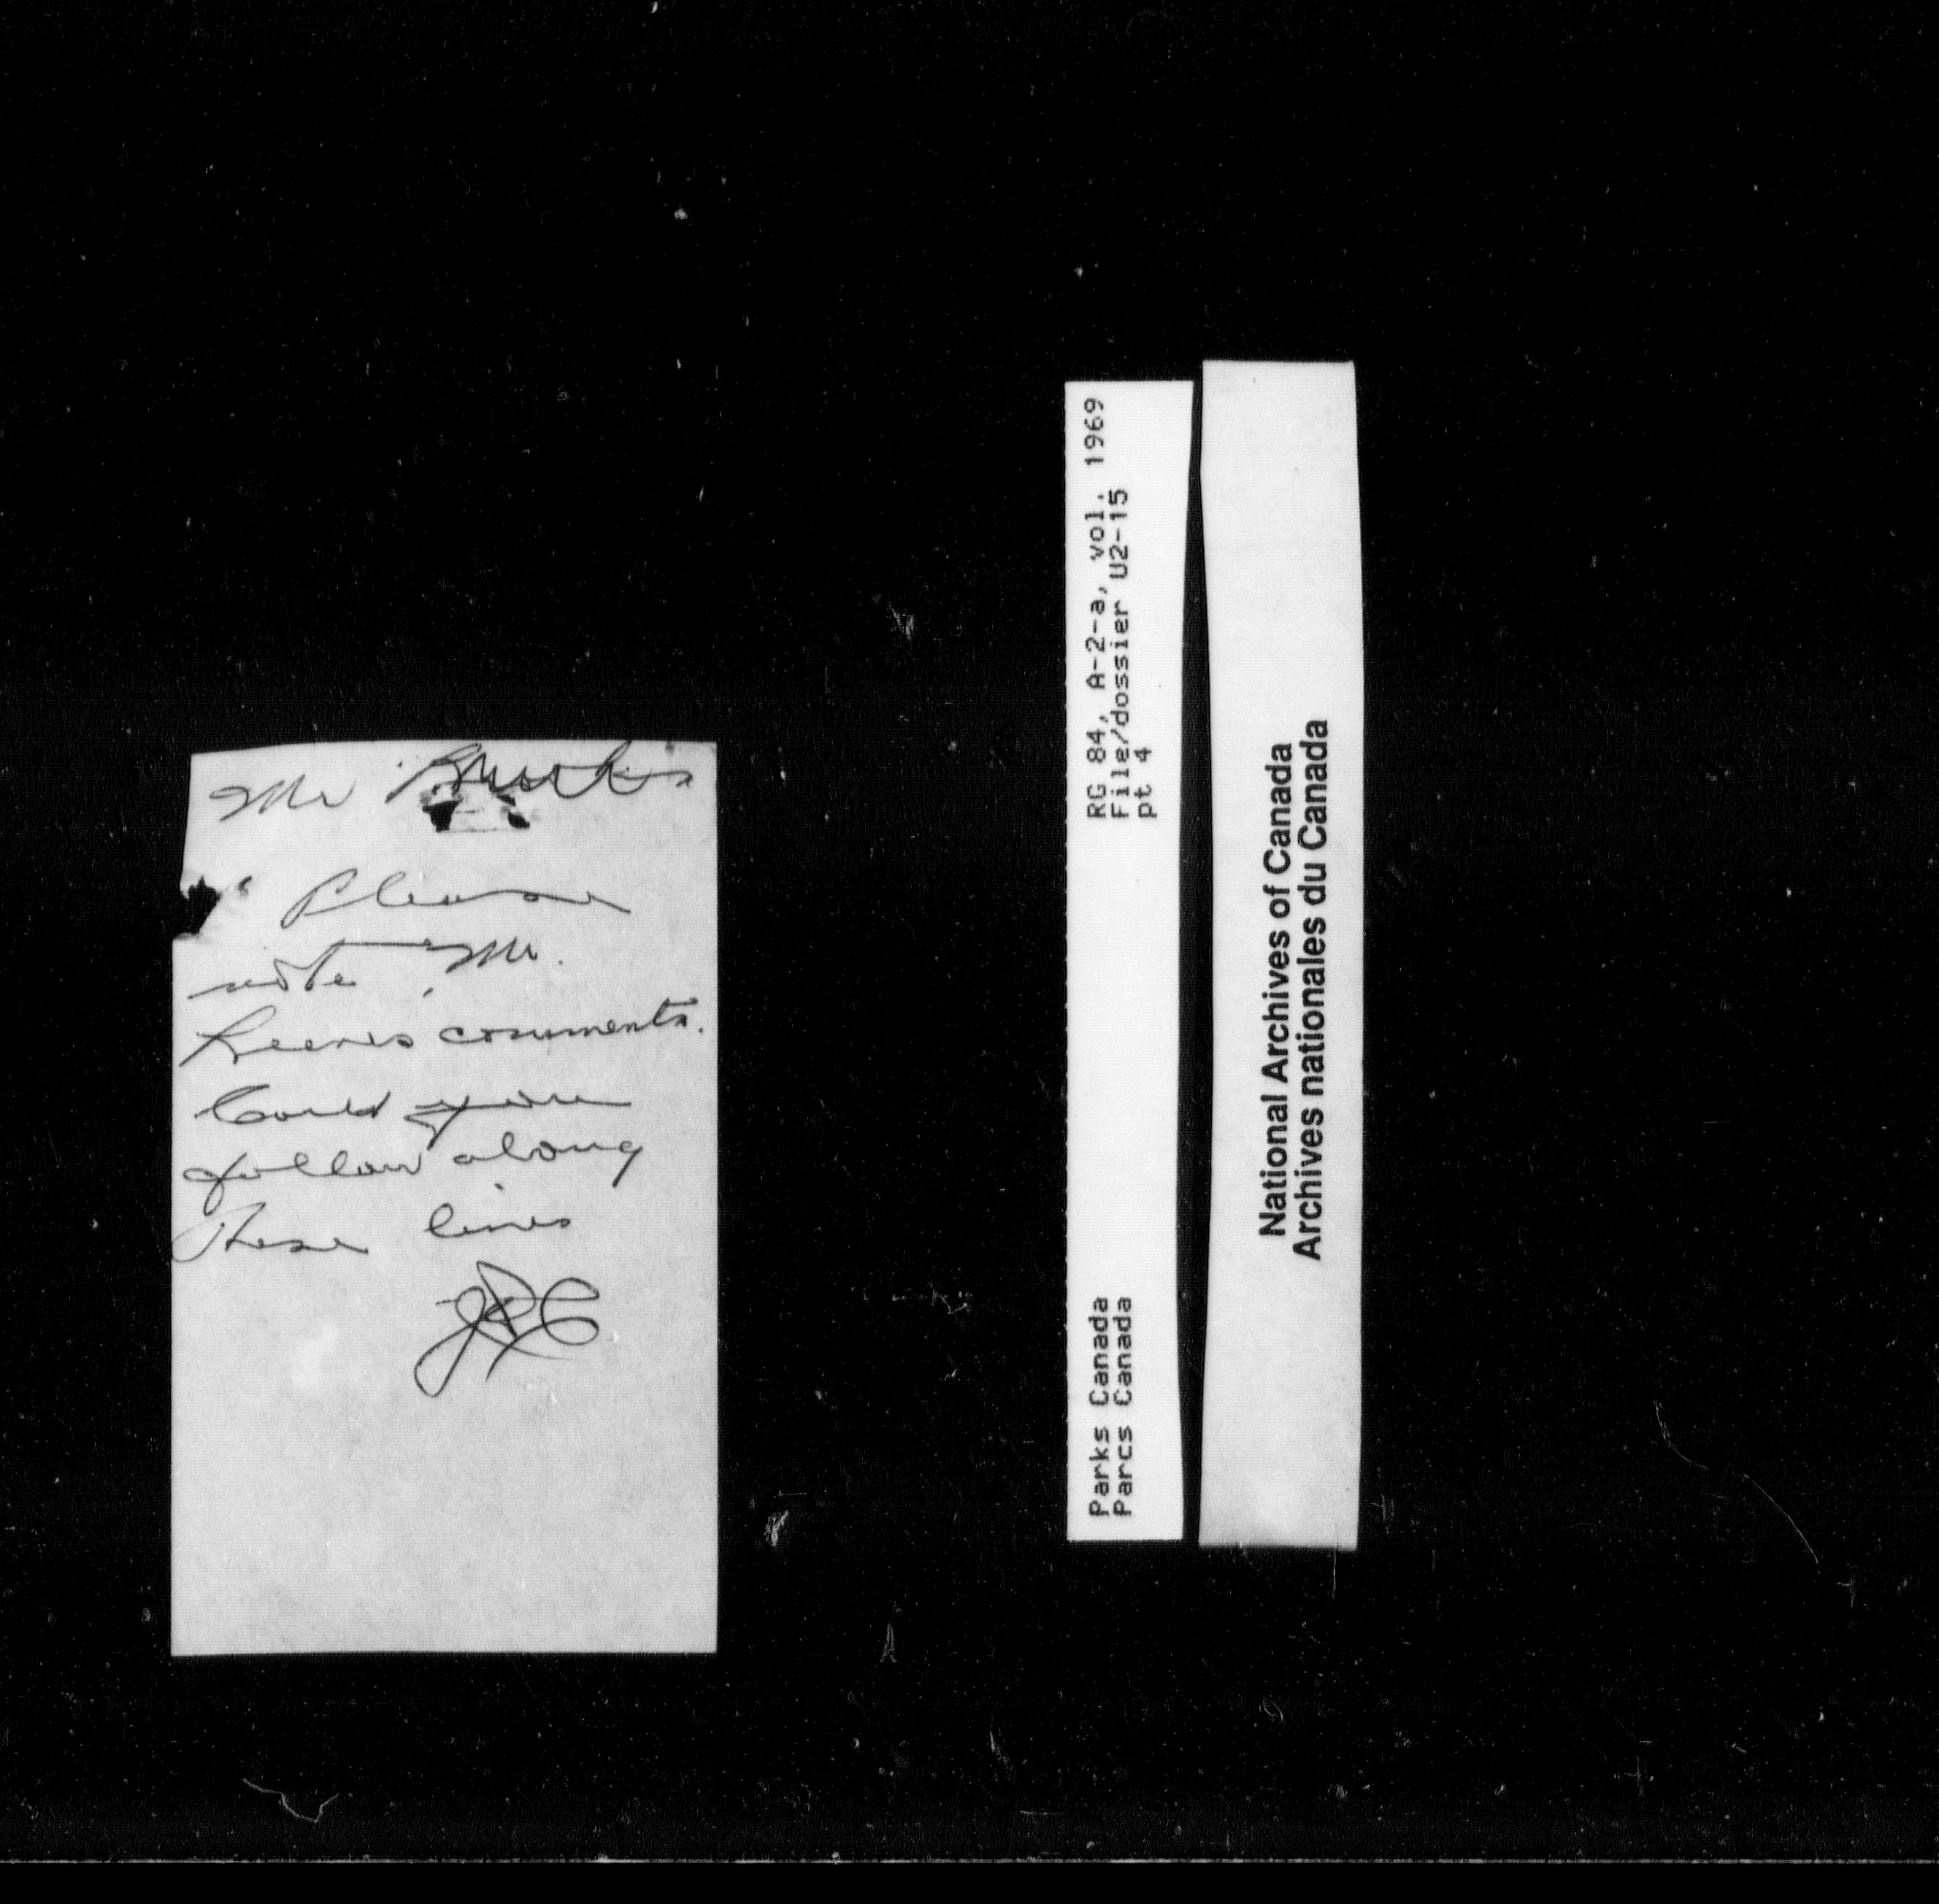 Mr
Please
note Mr.
comments.
Could you
follow along
These lines
RG 84, A-2-a, vol. 1969
File/dossier U2-15
pt 4
Parks Canada
Parcs Canada
National Archives of Canada
Archives nationales du Canada